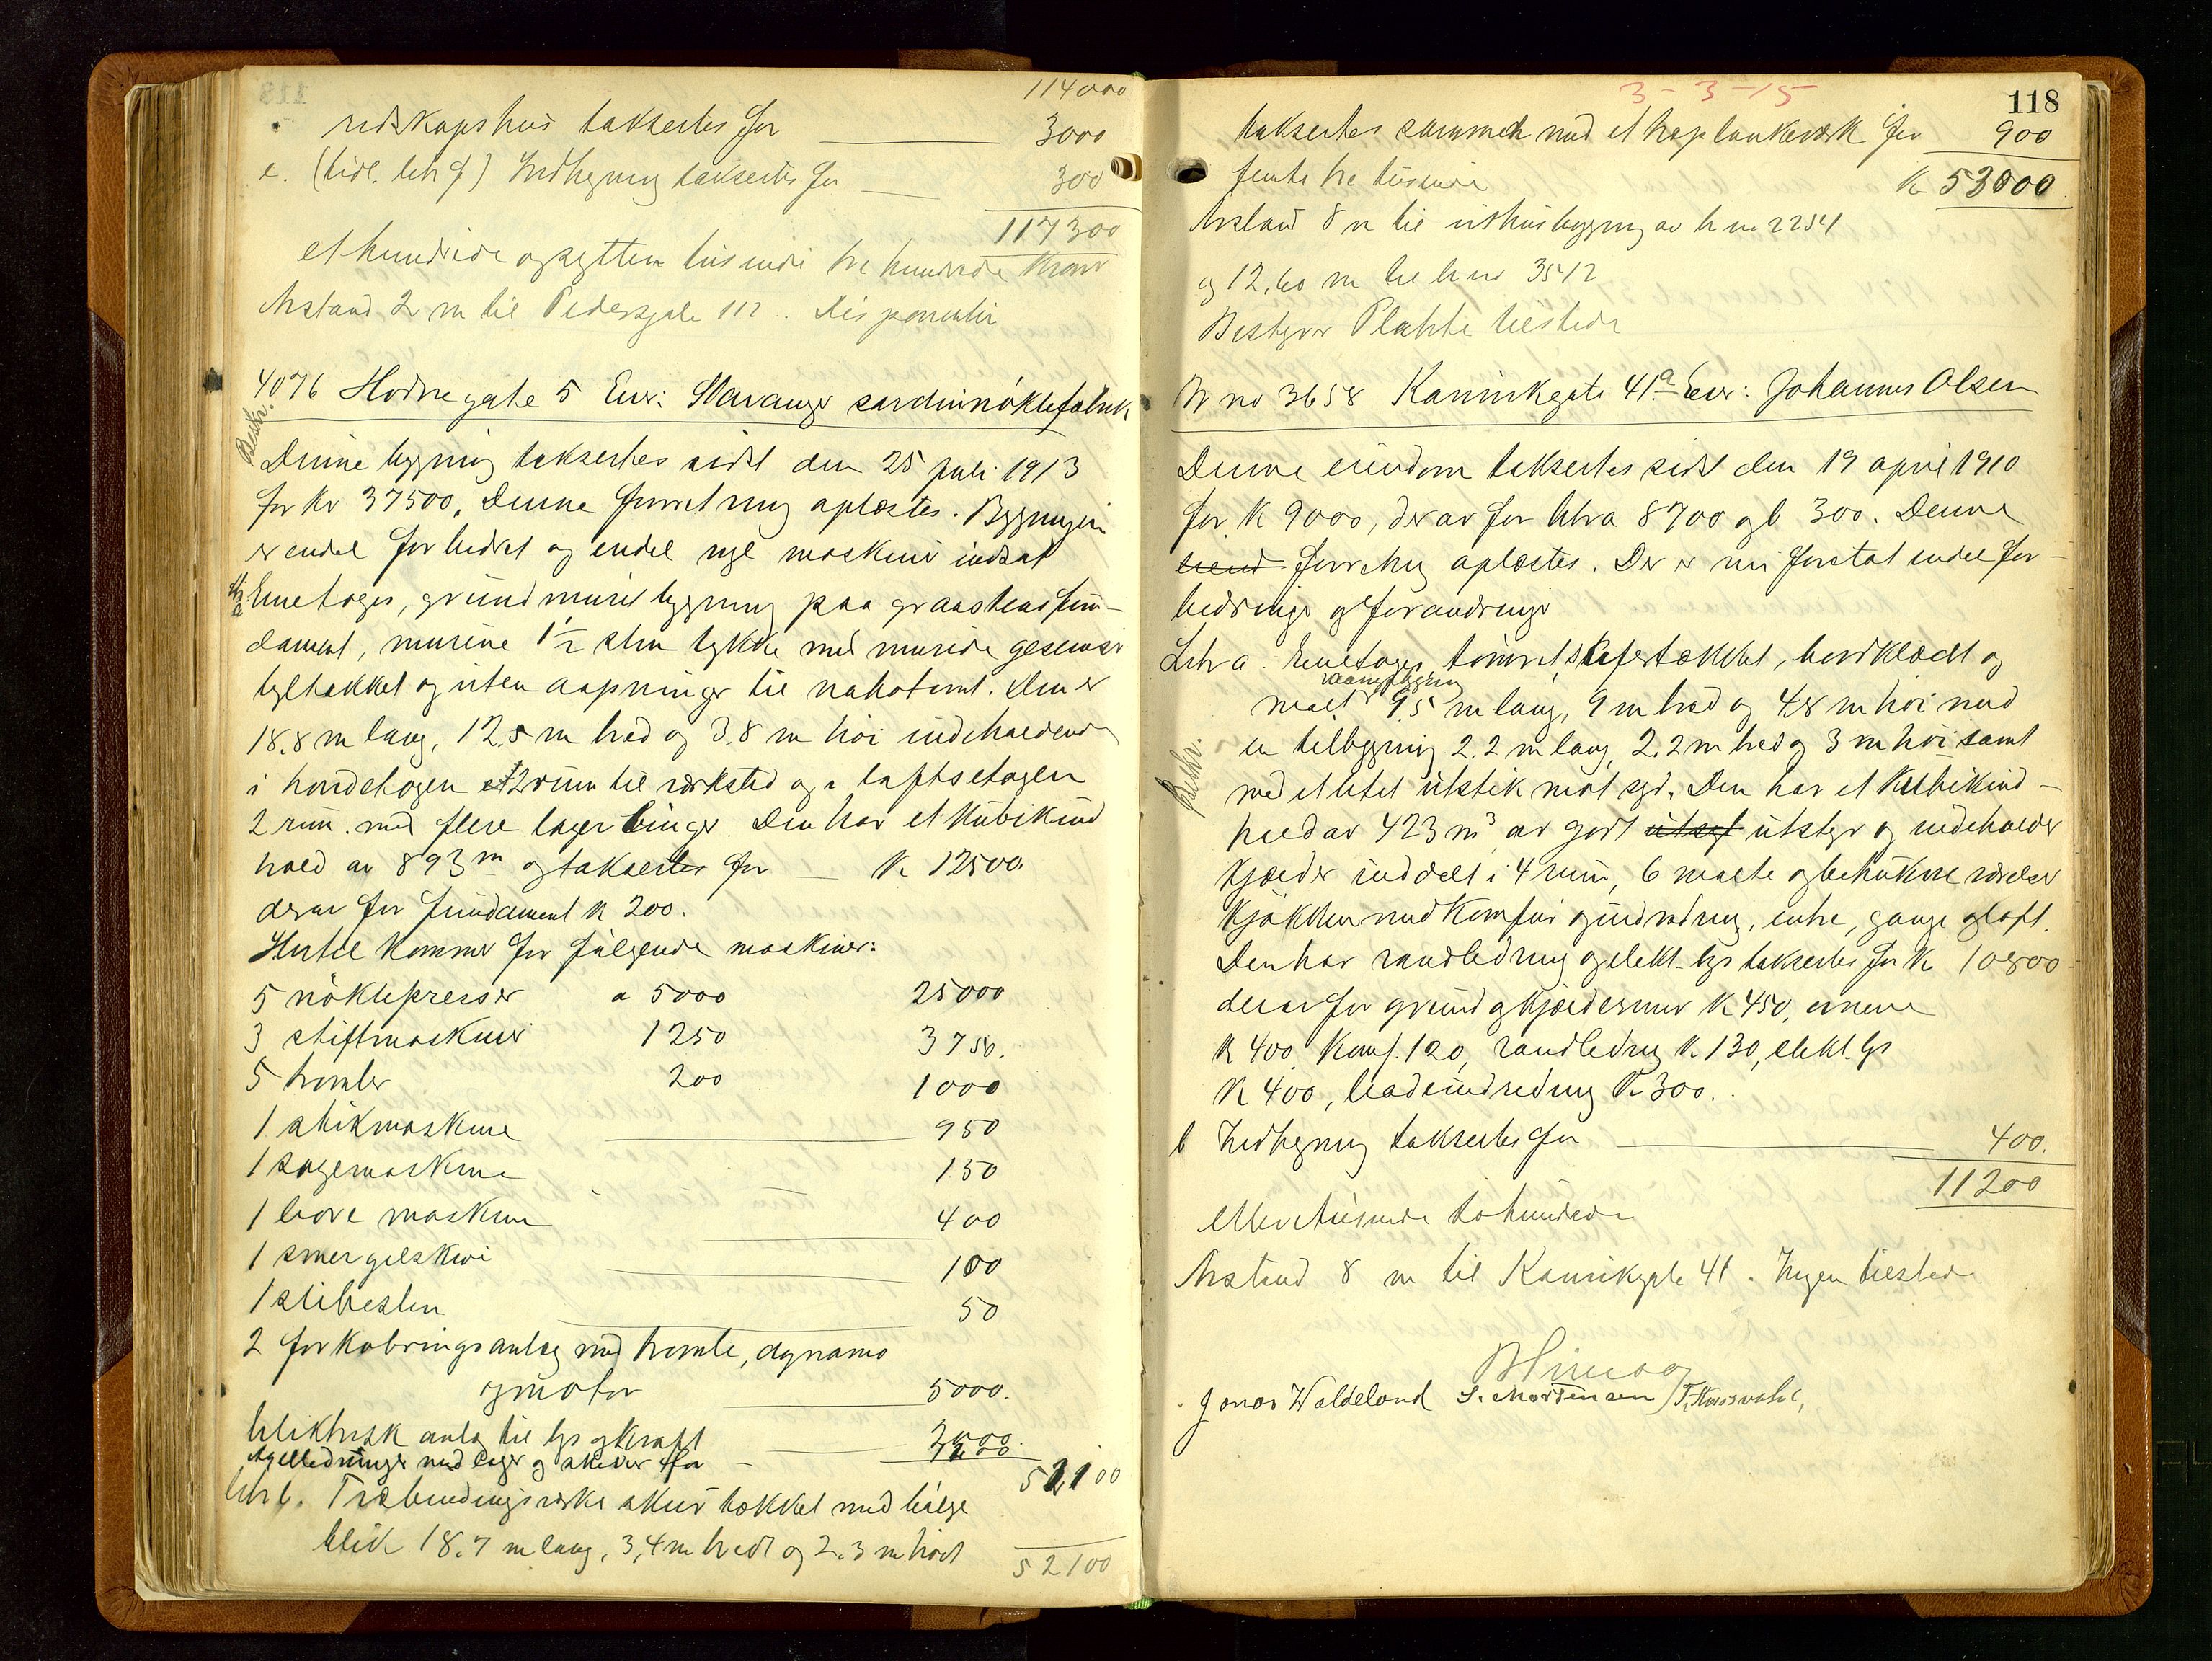 114000
redskapshus takseres for 3000
e. (tidl. litr f) Indhegning takseres for 300
117300
et hundrede og sytten tusinde tre hundrede kroner
Avstand 2 m til Pedersgate 112. Disponenten
4076 Hodnegate 5 Eier: Stavanger sardinnøklefabrik
Beskr.
Denne bygning taksertes sidst den 25 juli 1913
for kr 37500. Denne forretning oplæstes. Bygningen
er endel forbedret og endel nye maskiner indsat
Litr a. Enetages, grundmuret bygning paa graastensfun-
dament, murene 1 1/2 sten tykke med murede gesemser
tegltækket og uten aapninger til nabotomt. Den er
18.8 m lang, 12.5 m bred og 3.8 m høi indeholdende
i hovedetagen 2 rum til verksted og i loftsetagen
2 rum med flere lagerbinger. Den har et kubikind
hold av 893 m og takseres for K 12500.
derav for fundament K 200.
Hertil kommer for følgende maskiner:
5 nøklepresser a 5000 25000
3 stiftmaskiner 1250 3750.
5 tromler 200 1000
1 stikmaskine 950
1 sagemaskine 150
1 bore maskine 400
1 smergelskive 100
1 slibesten 50
2 forkobringsanlæg med tromle, dynamo
og motor 5000.
Elektrisk anlæg til lys og kraft 3000.
Axelledninger med lager og skiver for 52100
Litr b. Træbindingsverks skur tækket med bølge
blik 18.7 m lang, 3,4 m bredt og 2.3 m høit
52100
3-3-15
118
takseres sammen med et træplankeverk for 900
femti tre tusinde K 53000
Avstand 8 m til uthusbygning av br no 2254
og 12.60 m til br no 3512
Bestyrer Plahte tilstede
Br no 3658 Kannikgate 41a Eier: Johannes Olsen
Denne eiendom taksertes sidst den 19 april 1910
for K 9000, derav for litr a 8700 og b 300. Denne
eiend forretning oplæstes. Der er nu foretat endel for-
bedringer og forandringer
Litr a. Enetages, tømret, skifertækket, bordklædt og
malt vaaningsbygning 9.5 m lang, 9 m bred og 4.8 m høi med
en tilbygning 2.2 m lang, 2.2 m bred og 3 m høi samt
Beskr.
med et litet utstik mot syd. Den har et kubikind-
hold av 423 m3 av godt utstyr og indeholder
kjælder inddelt i 4 rum, 6 malte og betrukne værelser
kjøkken med komfur og indredning, entre, gange og loft.
Den har vandledning og elekt. lys takseres for K 10800
derav for grund og kjældermur K 450, ovnene
K 400, Komf. 120, vandledning K 130, elekt. lys
K 400, badeindredning K 300.
b Indhegning takseres for 400.
11200
Ellevetusinde tohundrede
Avstand 8 m til Kannikgate 41. Ingen tilstede
Jonas Waldeland S. Mortensen